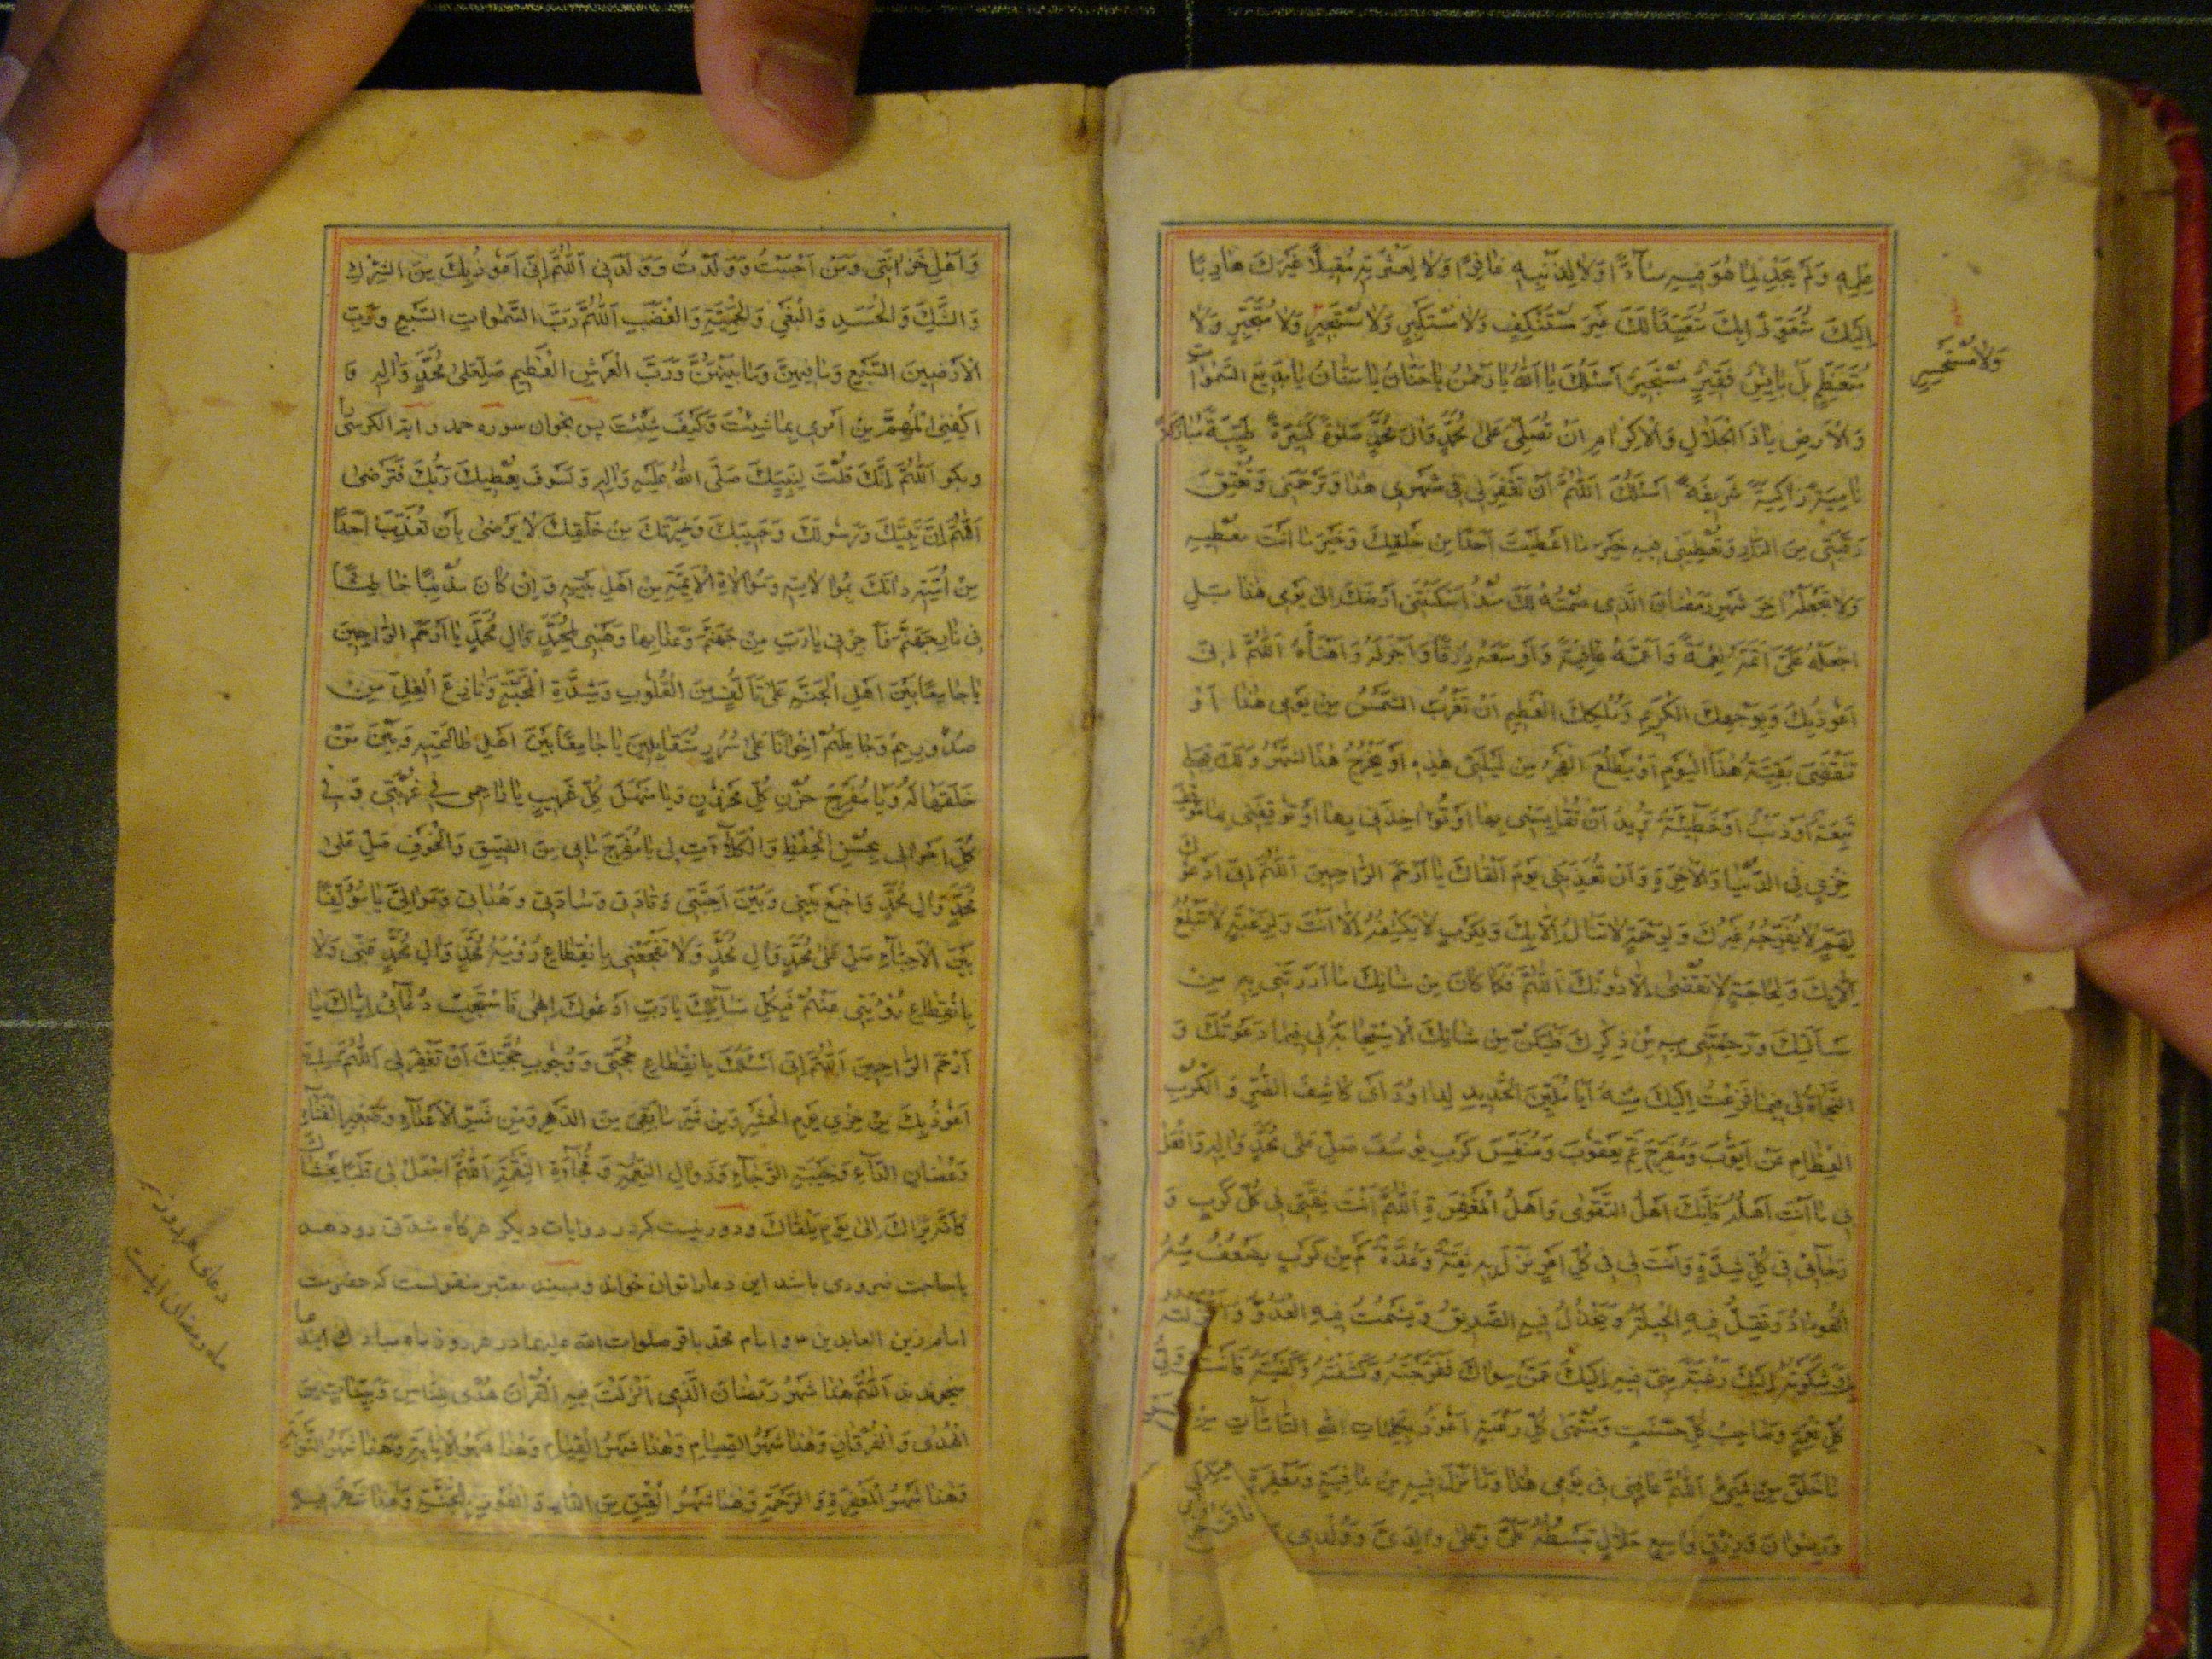 عِلْمِهِ وَلَمْ يَجِدْ لِمَا هُوَ فِيهِ سَادًّا وَلَا لِذَنْبِهِ غَافِرًا وَلَا لِعَثْرَتِهِ مُقِيلًا غَيْرَكَ هَارِبًا
اِلَيْكَ مُتَعَوِّذًا بِكَ مُتَعَبِّدًا لَكَ غَيْرَ مُسْتَنْكِفٍ وَلَا مُسْتَكْبِرٍ وَلَا مُتَجَبِّرٍ وَلَا
وَلَا مُسْتَحْسِرٍ
مُتَعَظِّمٍ بَلْ بَائِسٌ فَقِيرٌ مُسْتَجِيرٌ اَسْئَلُكَ يَا اَللهُ يَا رَحْمٰنُ يَا حَنَّانُ يَا مَنَّانُ يَا بَدِيعَ السَّمٰوَاتِ
وَالْاَرْضِ يَا ذَا الْجَلَالِ وَالْاِكْرَامِ اَنْ تُصَلِّيَ عَلٰى مُحَمَّدٍ وَآلِ مُحَمَّدٍ صَلٰوةً كَثِيرَةً طَيِّبَةً مُبَارَكَةً
نَامِيَةً زَاكِيَةً شَرِيفَةً اَسْئَلُكَ اَللّٰهُمَّ اَنْ تَغْفِرَ لِي فِي شَهْرِي هٰذَا وَتَرْحَمَنِي وَتُعْتِقَ
رَقَبَتِي مِنَ النَّارِ وَتُعْطِيَنِي فِيهِ خَيْرَ مَا اَعْطَيْتَ اَحَدًا مِنْ خَلْقِكَ وَخَيْرَ مَا اَنْتَ مُعْطِيهِ
وَلَا تَجْعَلْهُ آخِرَ شَهْرِ رَمَضَانَ الَّذِي صُمْتُهُ لَكَ مُنْذُ اَسْكَنْتَنِي اَرْضَكَ اِلٰى يَوْمِي هٰذَا بَلِ
اجْعَلْهُ عَلَيَّ اَتَمَّهُ نِعْمَةً وَاَعَمَّهُ عَافِيَةً وَاَوْسَعَهُ رِزْقًا وَاَجْزَلَهُ وَاَهْنَاَهُ اَللّٰهُمَّ اِنِّي
اَعُوذُ بِكَ وَبِوَجْهِكَ الْكَرِيمِ وَمُلْكِكَ الْعَظِيمِ اَنْ تَغْرُبَ الشَّمْسُ مِنْ يَوْمِي هٰذَا اَوْ
تَنْقَضِيَ بَقِيَّةُ هٰذَا الْيَوْمِ اَوْ يَطْلُعَ الْفَجْرُ مِنْ لَيْلَتِي هٰذِهِ اَوْ يَخْرُجَ هٰذَا الشَّهْرُ وَلَكَ قِبَلِي
تَبِعَةٌ اَوْ ذَنْبٌ اَوْ خَطِيئَةٌ تُرِيدُ اَنْ تُقَايِسَنِي بِهَا اَوْ تُؤَاخِذَنِي بِهَا اَوْ تُوقِفَنِي بِهَا مَوْقِفَ
خِزْيٍ فِي الدُّنْيَا وَالْآخِرَةِ وَاَنْ تُعَذِّبَنِي يَوْمَ اَلْقَاكَ يَا اَرْحَمَ الرَّاحِمِينَ اَللّٰهُمَّ اِنِّي اَدْعُوكَ
لِهَمٍّ لَا يُفَرِّجُهُ غَيْرُكَ وَلِرَحْمَةٍ لَا تُنَالُ اِلَّا بِكَ وَلِكَرْبٍ لَا يَكْشِفُهُ اِلَّا اَنْتَ وَلِرَغْبَةٍ لَا تُبْلَغُ
اِلَّا بِكَ وَلِحَاجَةٍ لَا تُقْضٰى اِلَّا دُونَكَ اَللّٰهُمَّ فَكَمَا كَانَ مِنْ شَانِكَ مَا اَرَدْتَنِي بِهِ مِنْ
مَسْاَلَتِكَ وَرَحِمْتَنِي بِهِ مِنْ ذِكْرِكَ فَلْيَكُنْ مِنْ شَانِكَ الْاِسْتِجَابَةُ لِي فِيمَا دَعَوْتُكَ وَ
النَّجَاةُ لِي فِيمَا فَزِعْتُ اِلَيْكَ مِنْهُ اَيَا مُلَيِّنَ الْحَدِيدِ لِدَاوُدَ اَيْ كَاشِفَ الضُّرِّ وَالْكُرَبِ
الْعِظَامِ عَنْ اَيُّوبَ وَمُفَرِّجَ غَمِّ يَعْقُوبَ وَمُنَفِّسَ كَرْبِ يُوسُفَ صَلِّ عَلٰى مُحَمَّدٍ وَآلِهِ وَافْعَلْ
بِي مَا اَنْتَ اَهْلُهُ فَاِنَّكَ اَهْلُ التَّقْوٰى وَاَهْلُ الْمَغْفِرَةِ اَللّٰهُمَّ اَنْتَ ثِقَتِي فِي كُلِّ كَرْبٍ وَ
رَجَائِي فِي كُلِّ شِدَّةٍ وَاَنْتَ لِي فِي كُلِّ اَمْرٍ نَزَلَ بِي ثِقَةٌ وَعُدَّةٌ كَمْ مِنْ كَرْبٍ يَضْعُفُ مِنْهُ
الْفُؤَادُ وَتَقِلُّ فِيهِ الْحِيلَةُ وَيَخْذُلُ فِيهِ الصَّدِيقُ وَيَشْمَتُ فِيهِ الْعَدُوُّ وَاَنْزَلْتُهُ
بِكَ وَشَكَوْتُهُ اِلَيْكَ رَغْبَةً مِنِّي فِيهِ اِلَيْكَ عَمَّنْ سِوَاكَ فَفَرَّجْتَهُ وَكَشَفْتَهُ وَكَفَيْتَهُ فَاَنْتَ وَلِيُّ
كُلِّ نِعْمَةٍ وَصَاحِبُ كُلِّ حَسَنَةٍ وَمُنْتَهٰى كُلِّ رَغْبَةٍ اَعُوذُ بِكَلِمَاتِ اللهِ التَّامَّاتِ مِنْ
مَا خَلَقَ مِنْ شَيْءٍ اَللّٰهُمَّ عَافِنِي فِي يَوْمِي هٰذَا وَمَا نَزَلَ فِيهِ مِنْ عَافِيَةٍ وَمَغْفِرَةٍ
وَرِضْوَانٍ وَرِزْقٍ وَاسِعٍ حَلَالٍ تَبْسُطُهُ عَلَيَّ وَعَلٰى وَالِدَيَّ وَوُلْدِي
وَاَهْلِ حُزَانَتِي وَمَنْ اَحْبَبْتُ وَوَلَدْتُ وَوَلَدَنِي اَللّٰهُمَّ اِنِّي اَعُوذُ بِكَ مِنَ الشِّرْكِ
وَالشَّكِّ وَالْحَسَدِ وَالْبَغْيِ وَالْحَمِيَّةِ وَالْغَضَبِ اَللّٰهُمَّ رَبَّ السَّمٰوَاتِ السَّبْعِ وَرَبَّ
الْاَرَضِينَ السَّبْعِ وَمَا فِيهِنَّ وَمَا بَيْنَهُنَّ وَرَبَّ الْعَرْشِ الْعَظِيمِ صَلِّ عَلٰى مُحَمَّدٍ وَآلِهِ وَ
اكْفِنِي الْمُهِمَّ مِنْ اَمْرِي بِمَا شِئْتَ وَكَيْفَ شِئْتَ پس بخوان سوره حمد و آية الكرسى
وبگو اَللّٰهُمَّ اِنَّكَ قُلْتَ لِنَبِيِّكَ صَلَّى اللهُ عَلَيْهِ وَآلِهِ وَلَسَوْفَ يُعْطِيكَ رَبُّكَ فَتَرْضٰى
اَللّٰهُمَّ اِنَّ نَبِيَّكَ وَرَسُولَكَ وَحَبِيبَكَ وَخِيَرَتَكَ مِنْ خَلْقِكَ لَا يَرْضٰى بِاَنْ تُعَذِّبَ اَحَدًا
مِنْ اُمَّتِهِ دَانَكَ بِمُوَالَاتِهِ وَمُوَالَاةِ الْاَئِمَّةِ مِنْ اَهْلِ بَيْتِهِ وَاِنْ كَانَ مُذْنِبًا خَاطِئًا
فِي نَارِ جَهَنَّمَ فَاَجِرْنِي يَا رَبِّ مِنْ جَهَنَّمَ وَعَذَابِهَا وَهَبْنِي لِمُحَمَّدٍ وَآلِ مُحَمَّدٍ يَا اَرْحَمَ الرَّاحِمِينَ
يَا جَامِعًا بَيْنَ اَهْلِ الْجَنَّةِ عَلٰى تَاَلُّفٍ مِنَ الْقُلُوبِ وَشِدَّةِ الْمَحَبَّةِ وَنَازِعَ الْغِلِّ مِنْ
صُدُورِهِمْ وَجَاعِلَهُمْ اِخْوَانًا عَلٰى سُرُرٍ مُتَقَابِلِينَ يَا جَامِعًا بَيْنَ اَهْلِ طَاعَتِهِ وَبَيْنَ مَنْ
خَلَقَهَا لَهُ وَيَا مُفَرِّجَ حُزْنِ كُلِّ مَحْزُونٍ وَيَا مَنْهَلَ كُلِّ غَرِيبٍ يَا رَاحِمِي فِي غُرْبَتِي وَفِي
كُلِّ اَحْوَالِي بِحُسْنِ الْحِفْظِ وَالْكَلَاءَةِ لِي يَا مُفَرِّجَ مَا بِي مِنَ الضِّيقِ وَالْخَوْفِ صَلِّ عَلٰى
مُحَمَّدٍ وَآلِ مُحَمَّدٍ وَاجْمَعْ بَيْنِي وَبَيْنَ اَحِبَّتِي وَقَادَتِي وَسَادَتِي وَهُدَاتِي وَمَوَالِيَّ يَا مُؤَلِّفًا
بَيْنَ الْاَحِبَّاءِ صَلِّ عَلٰى مُحَمَّدٍ وَآلِ مُحَمَّدٍ وَلَا تَفْجَعْنِي بِانْقِطَاعِ رُؤْيَةِ مُحَمَّدٍ وَآلِ مُحَمَّدٍ عَنِّي وَلَا
بِانْقِطَاعِ رُؤْيَتِي عَنْهُمْ فَبِكُلِّ مَسَائِلِكَ يَا رَبِّ اَدْعُوكَ اِلٰهِي فَاسْتَجِبْ دُعَائِي اِيَّاكَ يَا
اَرْحَمَ الرَّاحِمِينَ اَللّٰهُمَّ اِنِّي اَسْئَلُكَ بِانْقِطَاعِ حُجَّتِي وَوُجُوبِ حُجَّتِكَ اَنْ تَغْفِرَ لِي اَللّٰهُمَّ اِنِّي
اَعُوذُ بِكَ مِنْ خِزْيِ يَوْمِ الْحَشْرِ وَمِنْ شَرِّ مَا بَقِيَ مِنَ الدَّهْرِ وَمِنْ شَرِّ الْاَعْدَاءِ وَصَغِيرِ الْفَنَاءِ
وَعُضَالِ الدَّاءِ وَخَيْبَةِ الرَّجَاءِ وَزَوَالِ النِّعْمَةِ وَفُجَاءَةِ النَّقِمَةِ اَللّٰهُمَّ اجْعَلْ لِي قَلْبًا يَخْشَاكَ
كَاَنَّهُ يَرَاكَ اِلٰى يَوْمِ يَلْقَاكَ ودور نيست كه در روايات ديگر هرگاه شدتى رو دهد
يا حاجت ضرورى باشد اين دعا را توان خواند وبسند معتبر منقولست كه حضرت
امام زين العابدين و امام محمد باقر صلوات الله عليهما در هر روز ماه مبارك اين دعا
ميخواندند اَللّٰهُمَّ هٰذَا شَهْرُ رَمَضَانَ الَّذِي اَنْزَلْتَ فِيهِ الْقُرْآنَ هُدًى لِلنَّاسِ وَبَيِّنَاتٍ مِنَ
الْهُدٰى وَالْفُرْقَانِ وَهٰذَا شَهْرُ الصِّيَامِ وَهٰذَا شَهْرُ الْقِيَامِ وَهٰذَا شَهْرُ الْاِنَابَةِ وَهٰذَا شَهْرُ التَّوْبَةِ
وَهٰذَا شَهْرُ الْمَغْفِرَةِ وَالرَّحْمَةِ وَهٰذَا شَهْرُ الْعِتْقِ مِنَ النَّارِ وَالْفَوْزِ بِالْجَنَّةِ وَهٰذَا شَهْرٌ فِيهِ
دعاى هر روز
ماه رمضان اينست